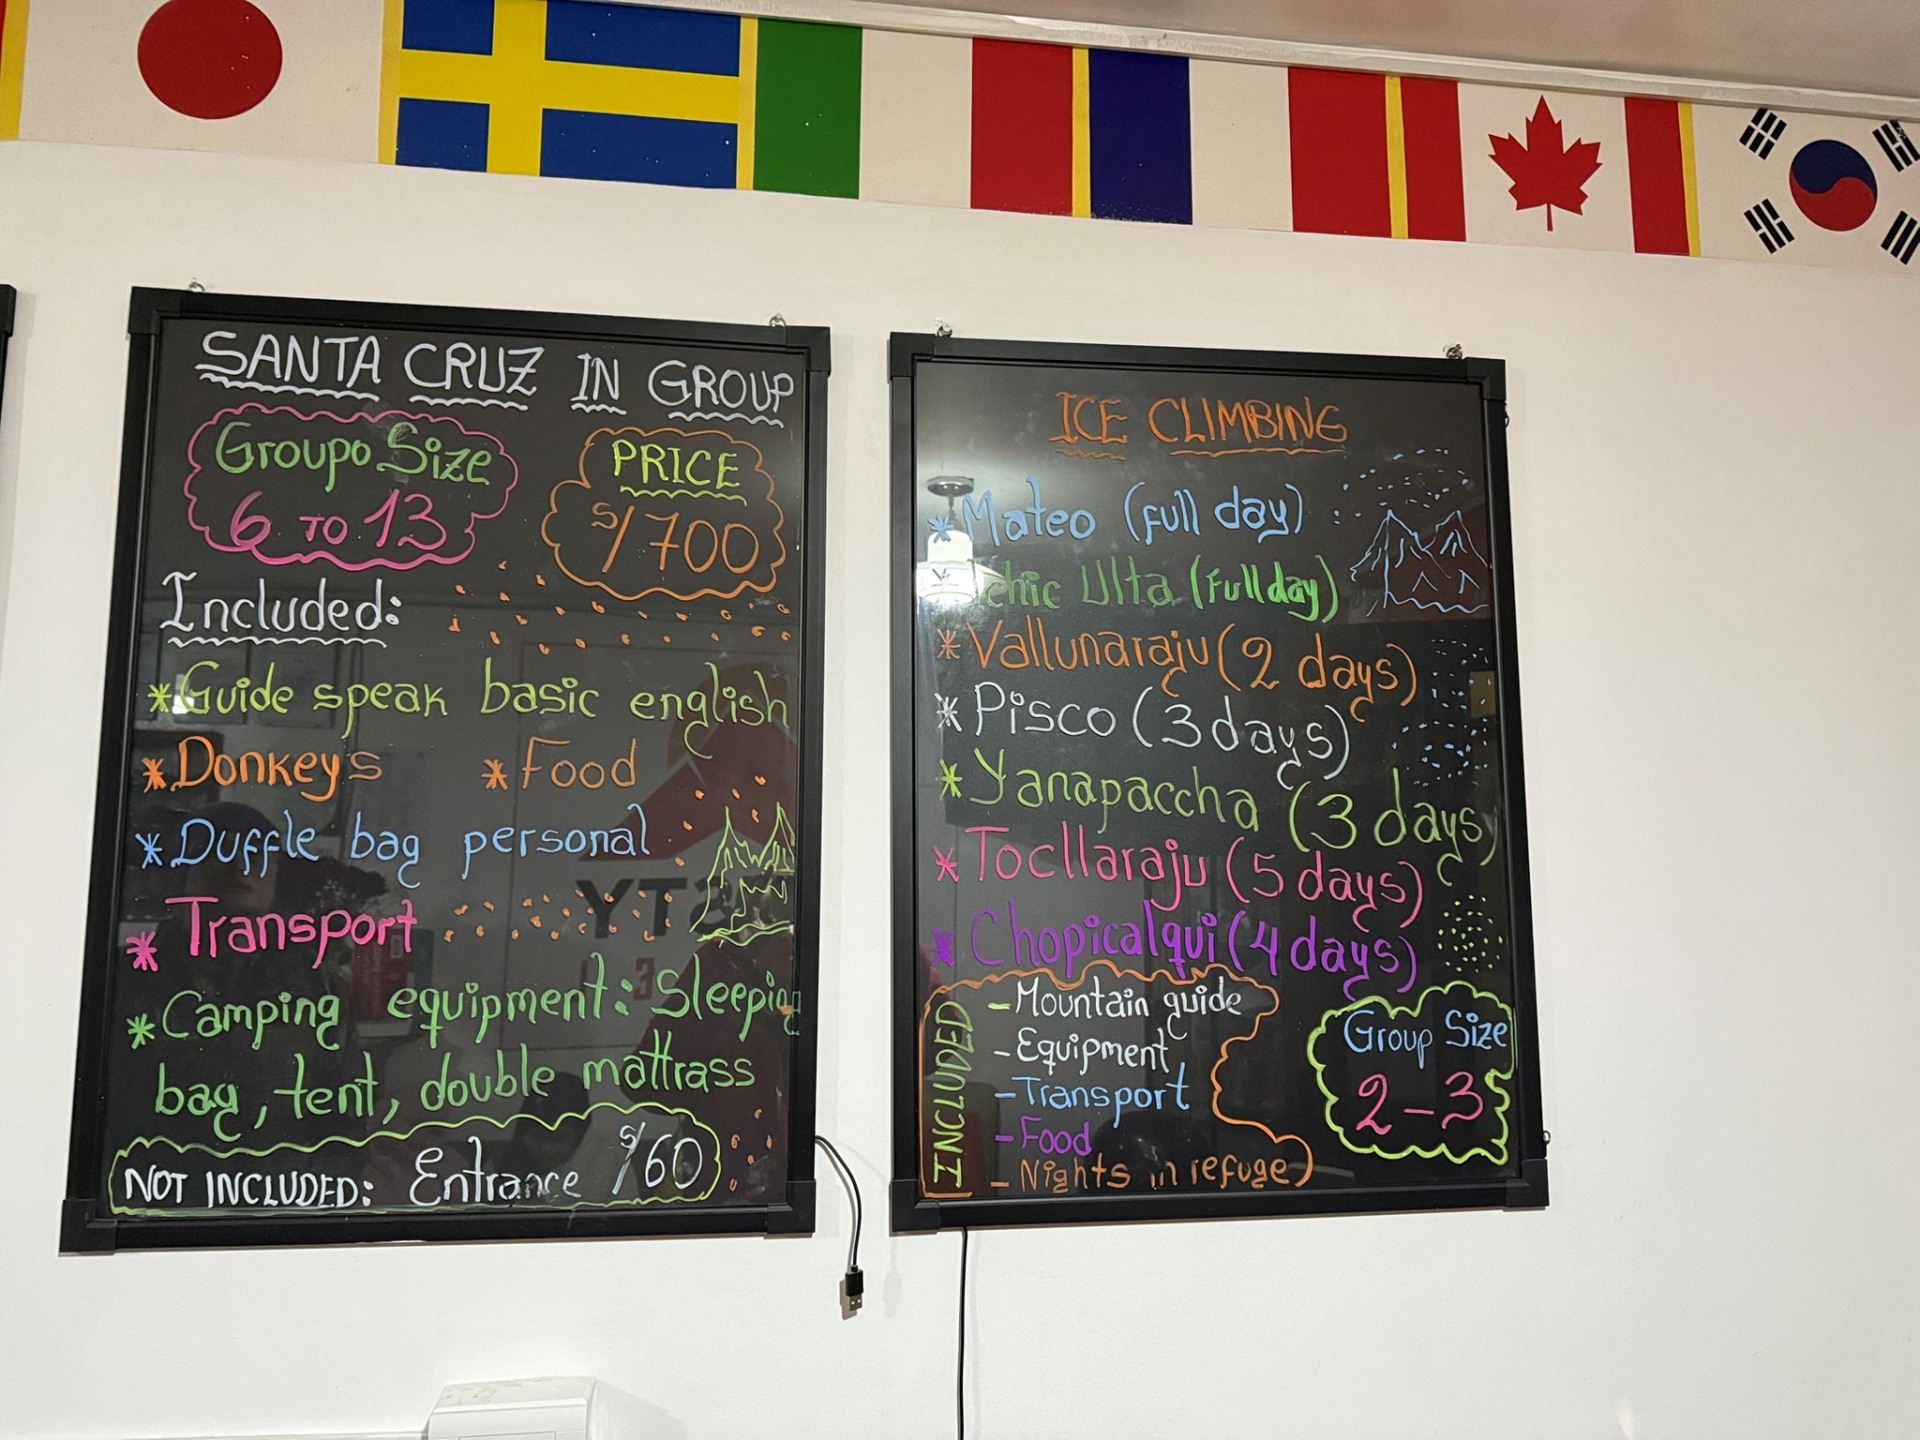 SANTA CRUZ IN GROUP
Groupo Size
6 TO 13
PRICE
S/700
Included:
*Guide speak basic english
*Donkeys *Food
*Duffle bag personal
*Transport
*Camping equipment: Sleeping
bag, tent, double mattrass
NOT INCLUDED: Entrance S/60
ICE CLIMBING
*Mateo (full day)
*Ichic Ulta (full day)
*Vallunaraju (2 days)
*Pisco (3 days)
*Yanapaccha (3 days)
*Tocllaraju (5 days)
*Chopicalqui (4 days)
INCLUDED
-Mountain guide
-Equipment
-Transport
-Food
-Nights in refuge
Group Size
2-3